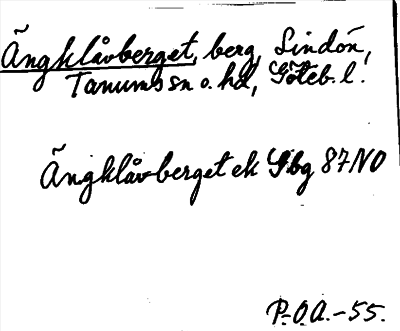 Ängklåvberget, berg, Lindön,
Tanums sn o. hd, Göteb. l.
Ängklåvberget ek Gbg 87 NO
P.O.A.-55.